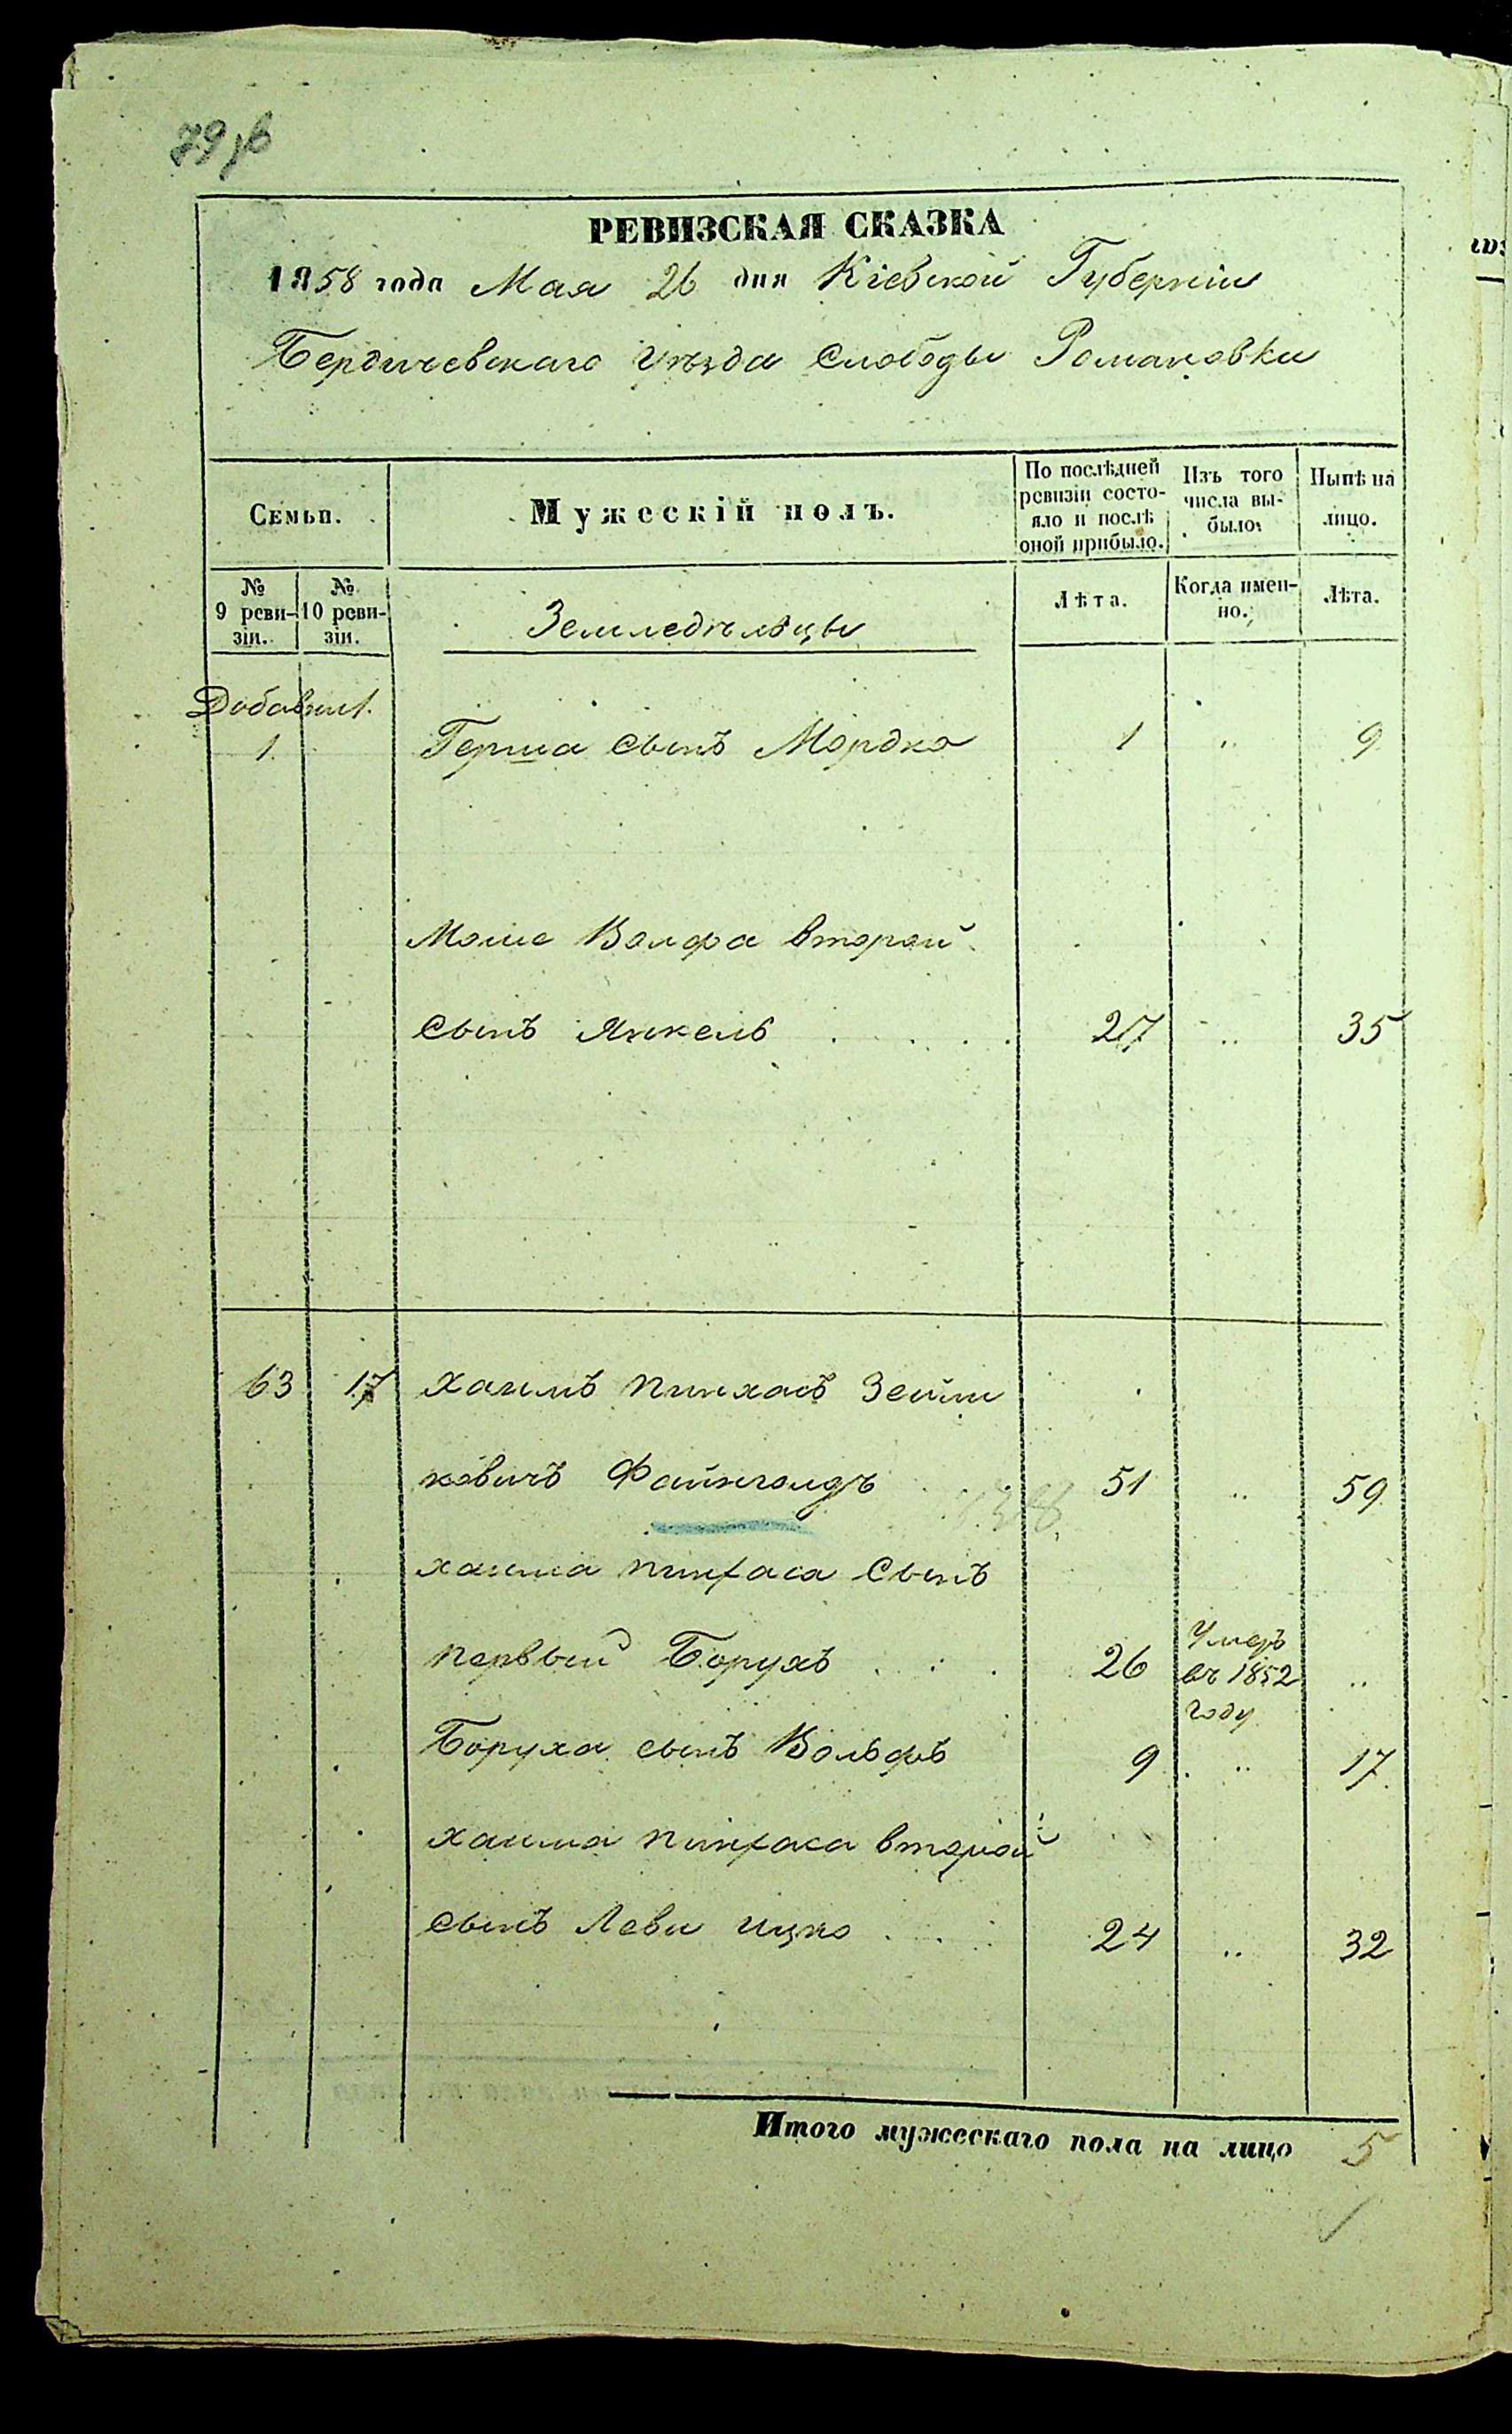 79 об
РЕВИЗСКАЯ СКАЗКА
1858 года Мая 26 дня Кіевской Губерніи
Бердичевскаго уѣзда Слободы Романовки
Семьи.
Мужескій полъ.
По послѣдней ревизіи состояло и послѣ оной прибыло.
Изъ того числа выбыло.
Нынѣ на лицо.
№ 9 ревизіи.
№ 10 ревизіи.
Земледѣльцы
Лѣта.
Когда именно.
Лѣта.
1. Герша сынъ Мордко 1 „ 9
Моше Волфа второй
сынъ Янкель . . . . 27 „ 35
63 17 Хаимъ Пинхасъ Зейли
ковичъ Файнголдъ 51 „ 59
Хаима Пинхаса Сынъ
первый Борухъ . . . 26 Умеръ въ 1852 году „
Боруха сынъ Вольфъ 9 „ 17
Хаима Пинхаса второй
сынъ Леви Ицко . . . 24 „ 32
Итого мужескаго пола на лицо 5